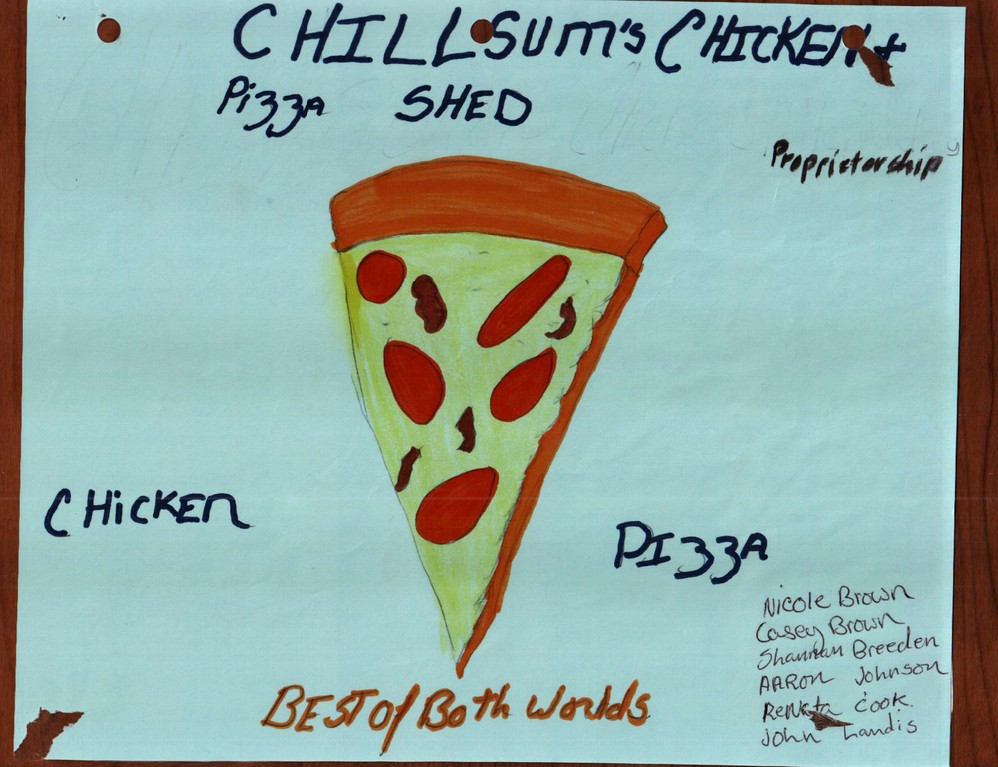 CHILLSUM's CHICKEN +
Pizza SHED
Proprietorship
CHICKEN
PIzzA
Nicole Brown
Casey Brown
Shannan Breeden
AARON Johnson
Renata Cook
John Landis
BEST of Both Worlds